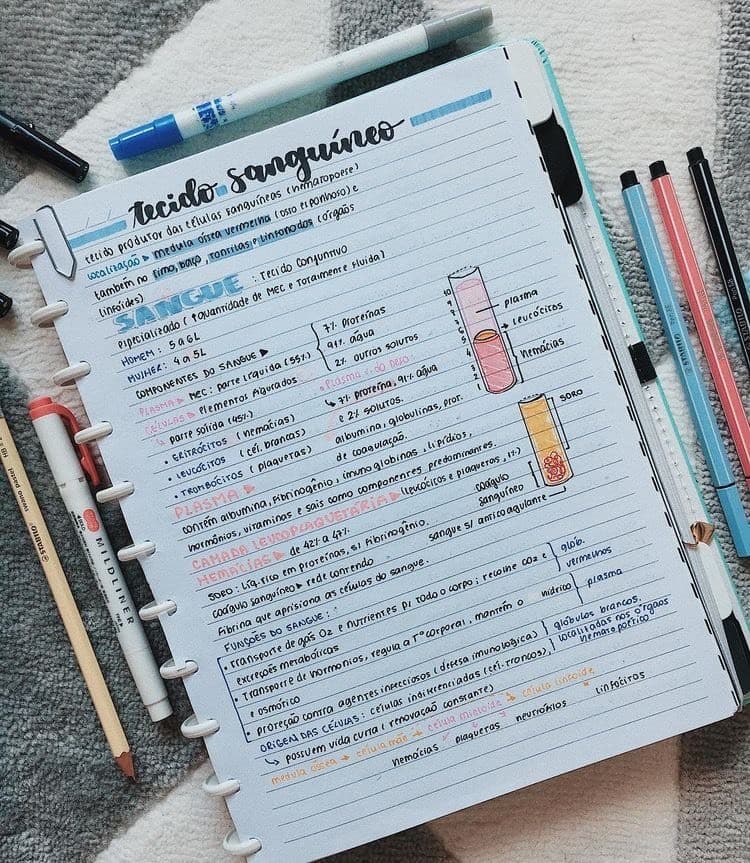 tecido sanguíneo
tecido produtor das células sanguíneas (hematopoese)
Localização ▸ medula óssea vermelha (osso esponhoso) e
também no timo, baço, tonsilas e linfonodos (órgãos
linfoides)
SANGUE : tecido conjuntivo
especializado (↑quantidade de MEC e totalmente fluida)
HOMEM: 5 a 6L
MULHER: 4 a 5L
COMPONENTES DO SANGUE ▸ { 7% proteínas
91% água
2% outros solutos
PLASMA ▸ MEC: parte líquida (55%)
CÉLULAS ▸ elementos figurados
↳ parte sólida (45%)
• ERITRÓCITOS (hemácias)
• LEUCÓCITOS (cél. brancas)
• TROMBÓCITOS (plaquetas)
↳ 7% proteína, 91% água
e 2% solutos.
albumina, globulinas, prot.
de coagulação.
plasma
leucócitos
hemácias
PLASMA ▸
contém albumina, fibrinogênio, imunoglobinas, lipídios,
hormônios, vitaminas e sais como componentes predominantes.
CAMADA LEUCOPLAQUETÁRIA ▸ (leucócitos e plaquetas, 1%)
HEMÁCIAS ▸ de 42% a 47%.
SORO
coágulo
sanguíneo
sangue s/ anticoagulante
SORO: líq. rico em proteínas, s/ fibrinogênio.
coágulo sanguíneo ▸ rede contendo
fibrina que aprisiona as células do sangue.
FUNÇÕES DO SANGUE:
• Transporte de gás O2 e nutrientes p/ todo o corpo; recolhe CO2 e
excreções metabólicas } glób.
vermelhos
• Transporte de hormônios, regula a Tº corporal, mantém o hídrico
e osmótico } plasma
• proteção contra agentes infecciosos (defesa imunológica) } glóbulos brancos.
ORIGEM DAS CÉLULAS: células indiferenciadas (cél. tronco), } localizadas nos órgãos
hematopoético
↳ possuem vida curta (renovação constante)
medula óssea → célula mãe → célula mieloide → célula linfoide
hemácias plaquetas neutrófilos linfócitos
MILDLINER
STABILO